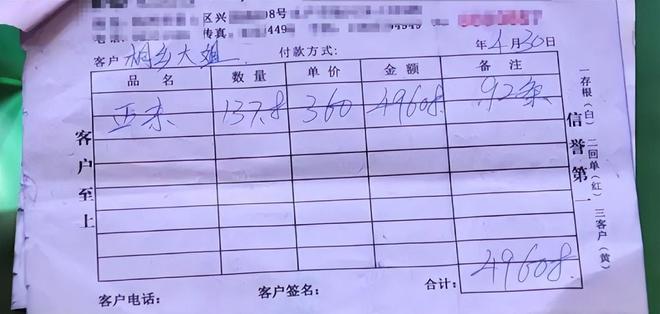 区兴 08号
传真 449 4949
客户 桐乡大姐 付款方式: 年4月30日
品名 数量 单价 金额 备注
亚东 137.8 360 49608. 92条
客户至上
信誉第一
一存根(白)二回单(红)三客户(黄)
合计: 49608.
客户电话: 客户签名: